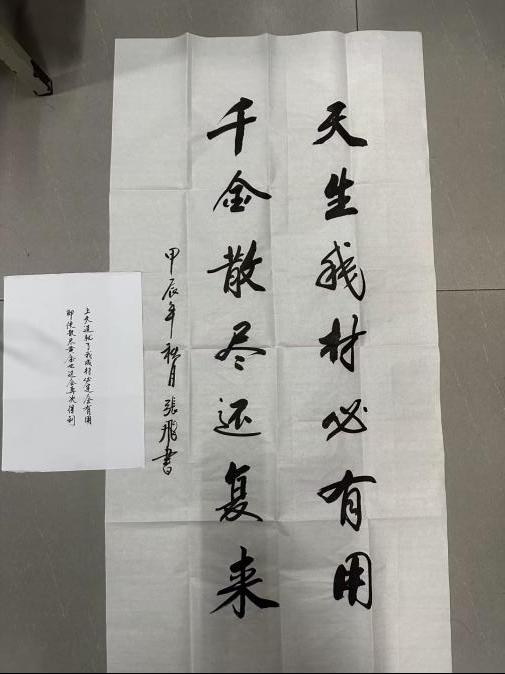 天生我材必有用
千金散尽还复来
甲辰年秋月张飛書
上天造就了我成材必定会有用
即使散尽黄金也还会再次得到